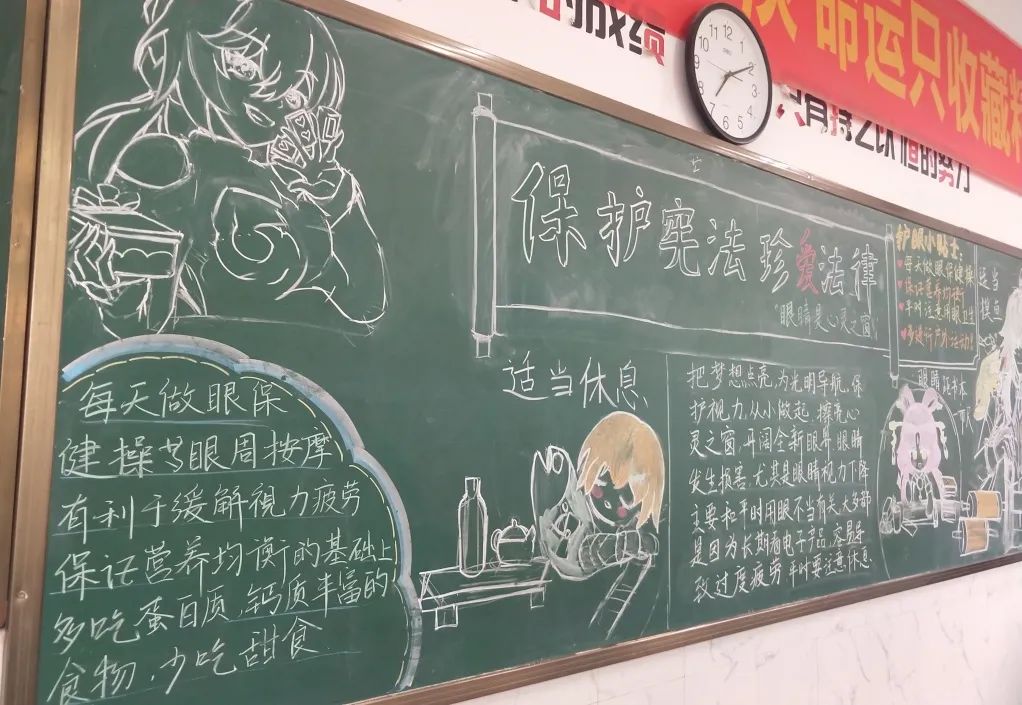 的成绩
命运只收藏
只有持之以恒的努力
保护宪法珍爱法律
眼睛是心灵之窗
护眼小贴士:
每天做眼保健操
保证营养均衡
平时注意用眼卫生
多进行户外活动!
适当
摸鱼
适当休息
每天做眼保
健操 眼周按摩
有利于缓解視力疲劳
保证营养均衡的基础上
多吃蛋白质,钙质丰富的
食物,少吃甜食
把梦想点亮,为光明导航,保
护视力,从小做起,擦亮心
灵之窗,开阔全新眼界 眼睛
发生损害,尤其是眼睛视力下降
主要和平时用眼不当有关,大多都
是因为长期看电子产品,容易导
致过度疲劳 平时要注意休息
眼睛